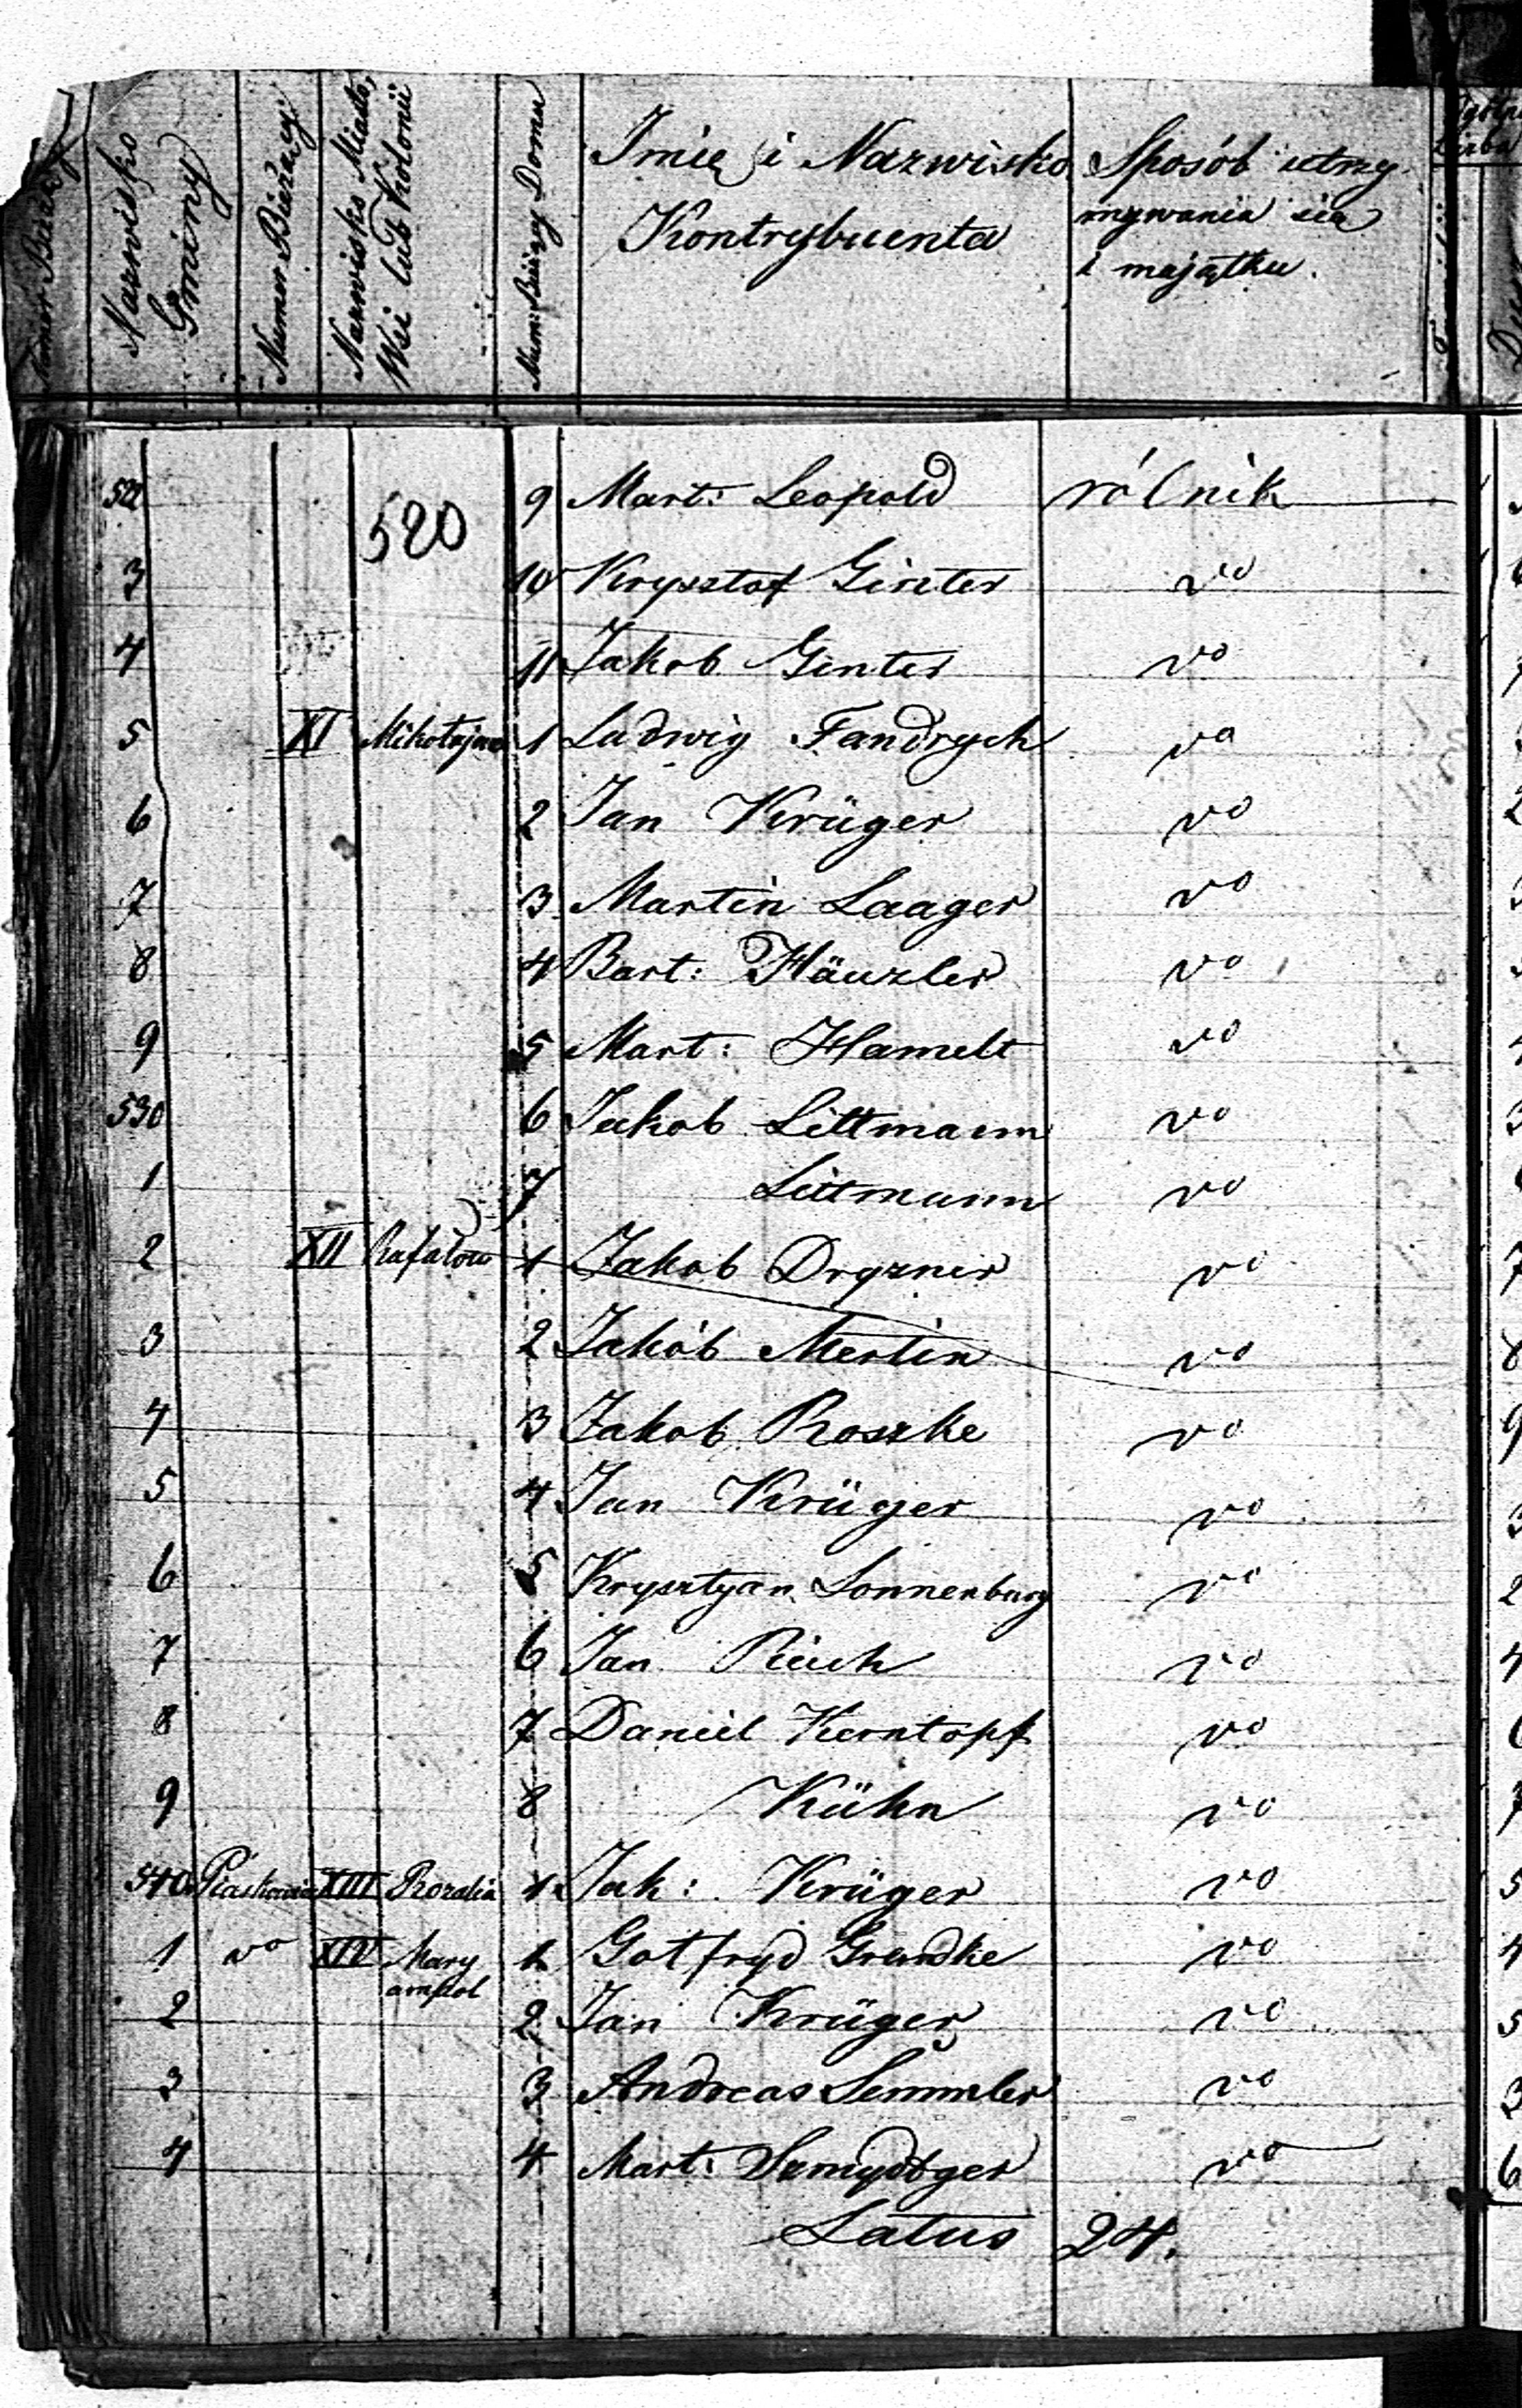 Numer Bieżący
Nazwisko
Gminy
Numer Bieżący
Nazwisko Miasta,
Wsi lub Kolonii
Num: Bieżący Domu
Imię i Nazwisko
Kontrybuenta
Sposób utrzy-
mywania się
i majątku.
522 9 Mart: Leopold rólnik
520
3 10 Krysztof Ginter vo
4 11 Jakob Ginter vo
5 XI Mikołajew 1 Ludwig Fandrych vo
6 2 Jan Krüger vo
7 3 Martin Laager vo
8 4 Bart: Häuzler vo
9 5 Mart: Hamelt vo
530 6 Jakob Littmann vo
1 7 Littmann vo
2 XII Rafałow 1 Jakob Dryzner vo
3 2 Jakób Mertin vo
4 3 Jakob Roszke vo
5 4 Jan Krüger vo
6 5 Krysztyan Sonnenburg vo
7 6 Jan Reich vo
8 7 Daniel Kerntopf vo
9 8 Kühn vo
540 XIII Rozalia 1 Jak: Krüger vo
1 vo XIV Mary 1 Gotfryd Grundke vo
ampol
2 2 Jan Krüger vo
3 3 Andreas Semmler vo
4 4 Mart: vo
Latus 24.